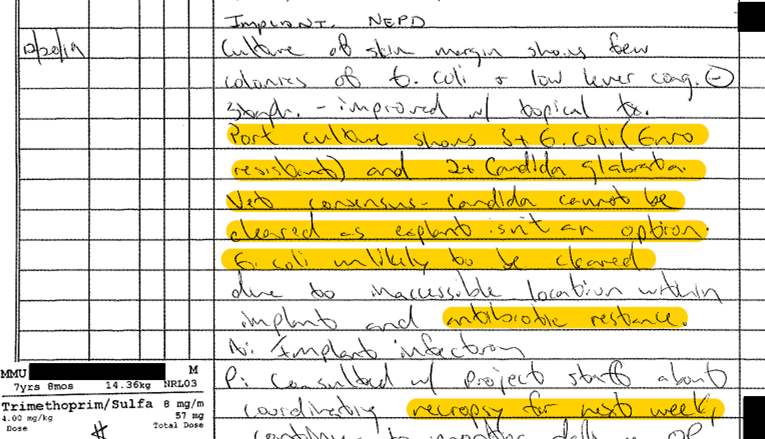 Implant. NEPD
12/20/19
Culture of skin margin shows few
colonies of E. coli + low level coag. (-)
Staph. - improved w/ topical tx.
Port culture shows 3+ E. coli (Enro
resistant) and 2+ Candida glabrata.
Vet consensus- candida cannot be
cleared as explant isn't an option.
E. coli unlikely to be cleared
due to inaccessible location within
implant and antibiotic restance.
A: Implant infection
MMU M
7yrs 8mos 14.36kg NRL03
P: Consulted w/ project staff about
Trimethoprim/Sulfa 8 mg/m
4.00 mg/kg 57 mg
Dose Total Dose
coordinating necropsy for next week,
#
continue to monitor